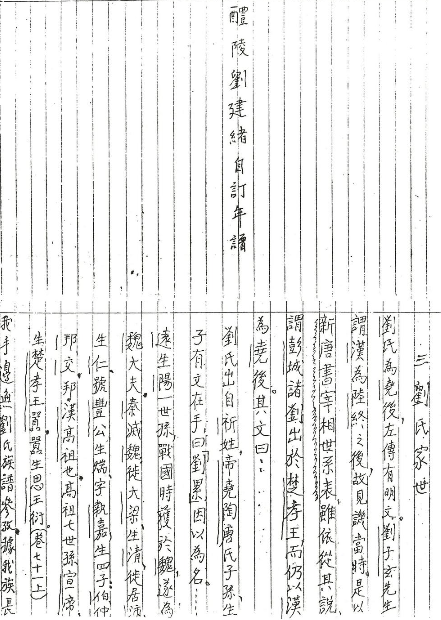 醴陵劉建緒自訂年譜
三 劉氏家世
劉氏為堯後，左傳有明文，劉子玄先生
謂漢為陸終之後，故見譏當時。是以
新唐書宰相世系表，雖依從其說，
謂彭城諸劉出於楚孝王，而仍以漢
為堯後。其文曰：‥
劉氏出自祈姓，帝堯陶唐氏子孫生
子有文在手曰劉累，因以為名。‥
遠生陽一世孫，戰國時獲於魏，遂為
魏大夫。秦滅魏，徙大梁，生清，徙居沛，
生仁，號豐公，生煓字執嘉，生四子，伯仲
邦交，邦漢高祖也。高祖七世孫宣帝，
生楚孝王囂，囂生思王衍，（卷七十一上）
我手邊無劉氏族譜參攷，據我族長